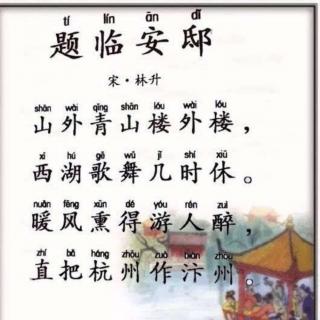 tí lín ān dǐ
题临安邸
宋·林升
shān wài qīng shān lóu wài lóu
山外青山楼外楼，
xī hú gē wǔ jǐ shí xiū
西湖歌舞几时休。
nuǎn fēng xūn dé yóu rén zuì
暖风熏得游人醉，
zhí bǎ háng zhōu zuò biàn zhōu
直把杭州作汴州。